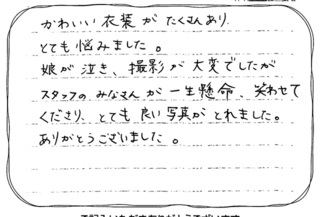 かわいい衣装がたくさんあり
とても悩みました。
娘が泣き、撮影が大変でしたが
スタッフのみなさんが一生懸命、笑わせて
くださり、とても良い写真がとれました。
ありがとうございました。